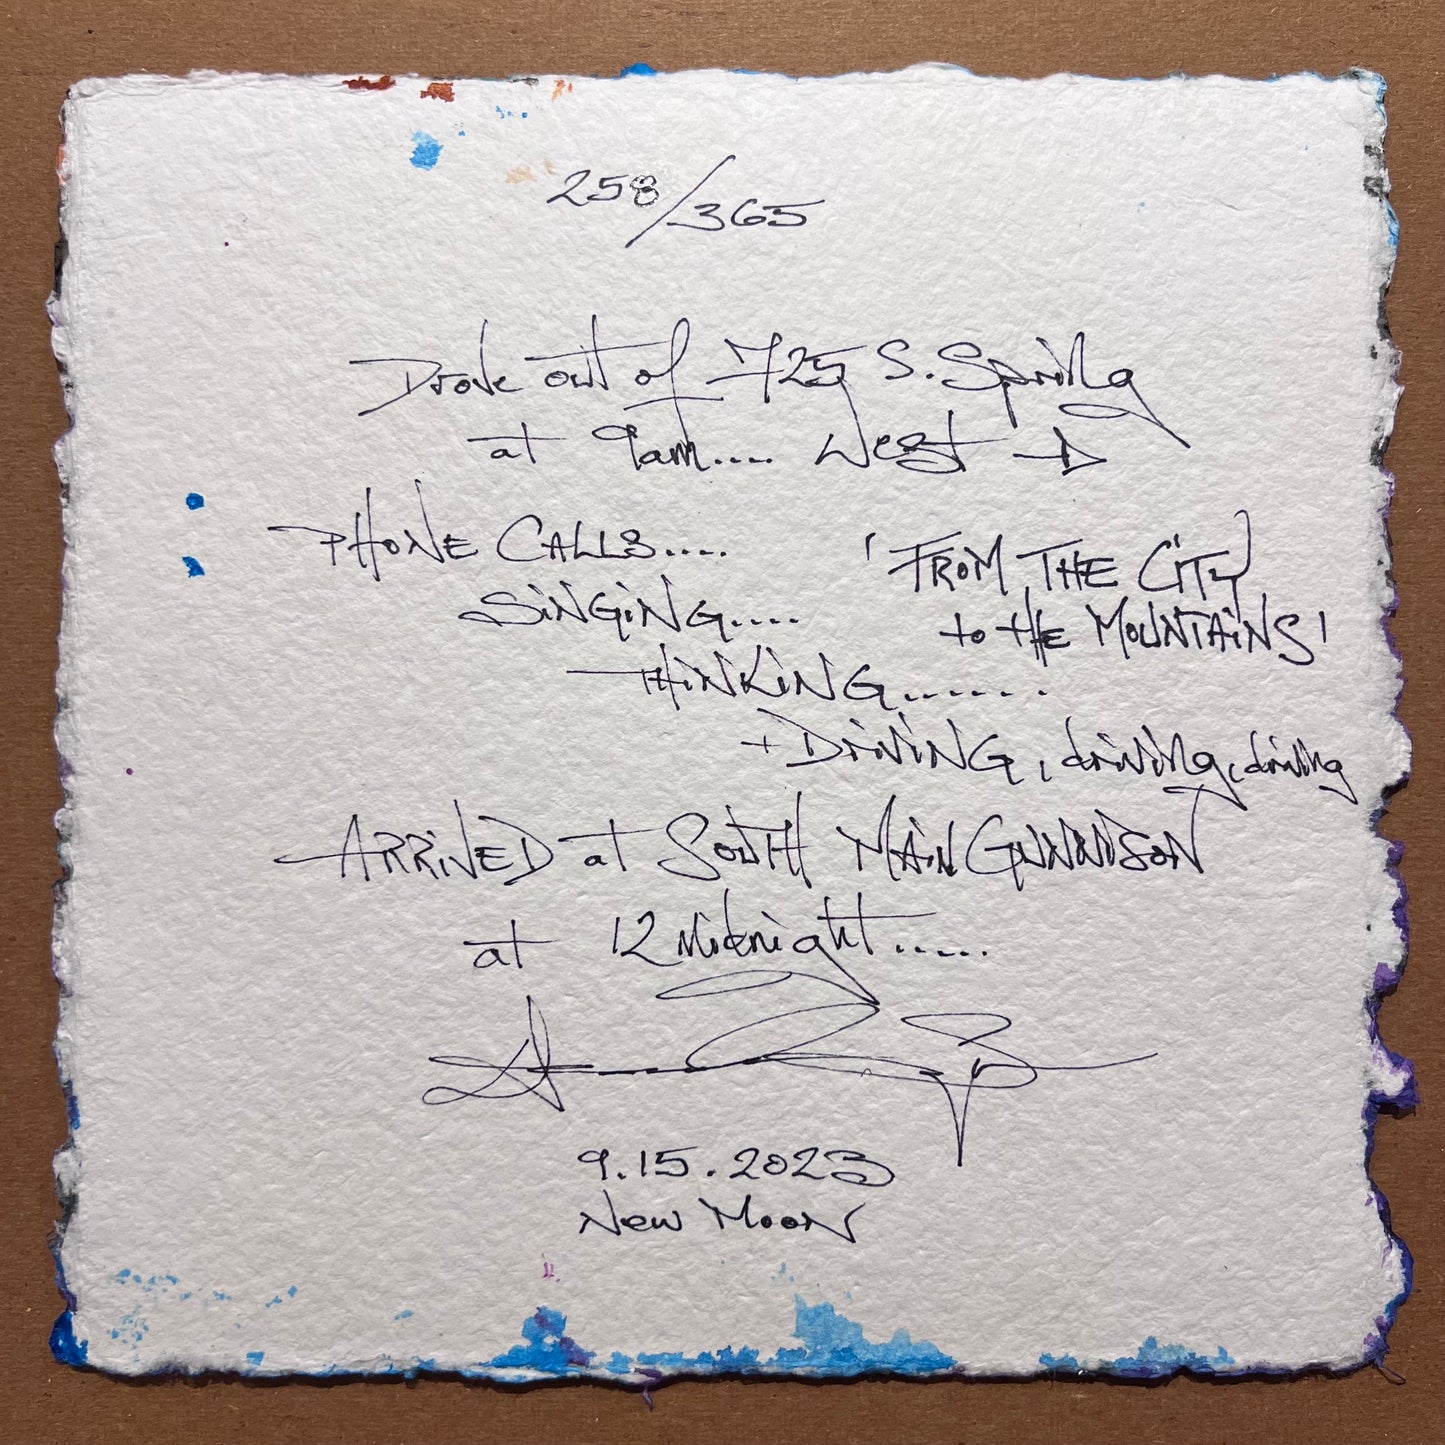 258/365
Drove out of 725 S. Spring
at 9am.... West →
PHONE CALLS....
SINGING....
THINKING......
'FROM THE CITY
to tHE MOUNTAINS'
+ DRIVING, driving, driving
ARRIVED at SOUTH MAIN GUNNISON
at 12 Midnight.....
9.15.2023
New Moon